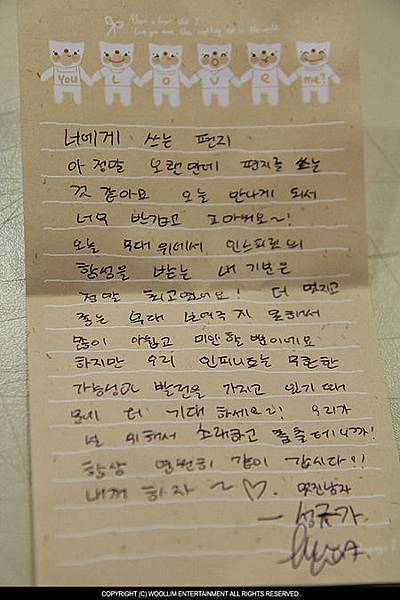 you L o v e me?
너에게 쓰는 편지
아 정말 오랜만에 편지를 쓰는
것 같아요 오늘 만나게 되서
너무 반갑고 고마워요~!
오늘 무대 위에서 인스피릿의
함성을 받는 내 기분은
정말 최고였어요! 더 멋지고
좋은 무대 보여주지 못해서
많이 아쉽고 미안할 뿐이네요
하지만 우리 인피니트는 무한한
가능성과 발전을 가지고 있기 때
문에 더 기대 하세요~! 우리가
널 위해서 노래하고 춤출테니까!
항상 영원히 같이 갑시다!!
내꺼 하자 ~ ♡. 멋진남자
- 성규가.
COPYRIGHT (C) WOOLLIM ENTERTAINMENT ALL RIGHTS RESERVED.